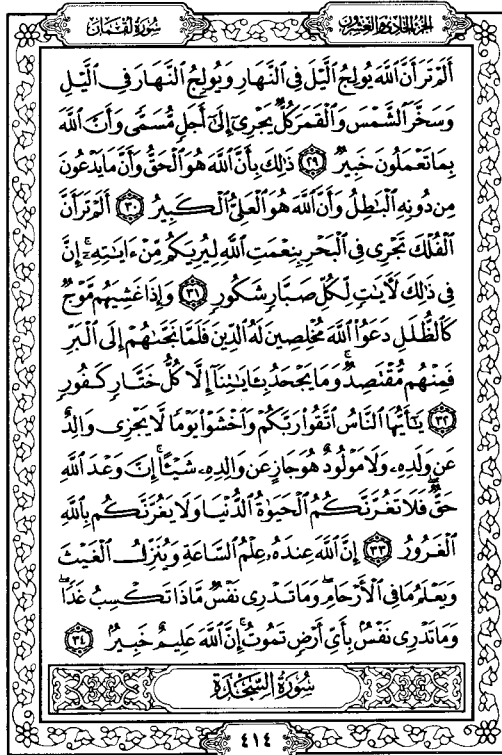 الجزء الحادي والعشرون
سورة لقمان
أَلَمْ تَرَ أَنَّ ٱللَّهَ يُولِجُ ٱلَّيْلَ فِى ٱلنَّهَارِ وَيُولِجُ ٱلنَّهَارَ فِى ٱلَّيْلِ
وَسَخَّرَ ٱلشَّمْسَ وَٱلْقَمَرَ كُلٌّ يَجْرِىٓ إِلَىٰٓ أَجَلٍ مُّسَمًّى وَأَنَّ ٱللَّهَ
بِمَا تَعْمَلُونَ خَبِيرٌ ٢٩ ذَٰلِكَ بِأَنَّ ٱللَّهَ هُوَ ٱلْحَقُّ وَأَنَّ مَا يَدْعُونَ
مِن دُونِهِ ٱلْبَٰطِلُ وَأَنَّ ٱللَّهَ هُوَ ٱلْعَلِىُّ ٱلْكَبِيرُ ٣٠ أَلَمْ تَرَ أَنَّ
ٱلْفُلْكَ تَجْرِى فِى ٱلْبَحْرِ بِنِعْمَتِ ٱللَّهِ لِيُرِيَكُم مِّنْ ءَايَٰتِهِۦٓ ۚ إِنَّ
فِى ذَٰلِكَ لَءَايَٰتٍ لِّكُلِّ صَبَّارٍ شَكُورٍ ٣١ وَإِذَا غَشِيَهُم مَّوْجٌ
كَٱلظُّلَلِ دَعَوُا۟ ٱللَّهَ مُخْلِصِينَ لَهُ ٱلدِّينَ فَلَمَّا نَجَّىٰهُمْ إِلَى ٱلْبَرِّ
فَمِنْهُم مُّقْتَصِدٌ ۚ وَمَا يَجْحَدُ بِـَٔايَٰتِنَآ إِلَّا كُلُّ خَتَّارٍ كَفُورٍ
٣٢ يَٰٓأَيُّهَا ٱلنَّاسُ ٱتَّقُوا۟ رَبَّكُمْ وَٱخْشَوْا۟ يَوْمًا لَّا يَجْزِى وَالِدٌ
عَن وَلَدِهِۦ وَلَا مَوْلُودٌ هُوَ جَازٍ عَن وَالِدِهِۦ شَيْـًٔا ۚ إِنَّ وَعْدَ ٱللَّهِ
حَقٌّ ۖ فَلَا تَغُرَّنَّكُمُ ٱلْحَيَوٰةُ ٱلدُّنْيَا وَلَا يَغُرَّنَّكُم بِٱللَّهِ
ٱلْغَرُورُ ٣٣ إِنَّ ٱللَّهَ عِندَهُۥ عِلْمُ ٱلسَّاعَةِ وَيُنَزِّلُ ٱلْغَيْثَ
وَيَعْلَمُ مَا فِى ٱلْأَرْحَامِ ۖ وَمَا تَدْرِى نَفْسٌ مَّاذَا تَكْسِبُ غَدًا ۖ
وَمَا تَدْرِى نَفْسٌۢ بِأَىِّ أَرْضٍ تَمُوتُ ۚ إِنَّ ٱللَّهَ عَلِيمٌ خَبِيرٌۢ ٣٤
سورة السجدة
٤١٤